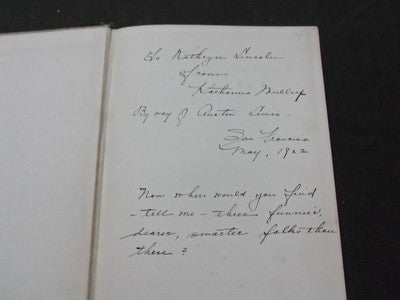 To Kathryn Lincoln
from
Katharine
By way of Austin Lewis.
San Francisco
May, 1922
Now where would you find
- tell me - three funnier,
dearer, smarter folks than
these?